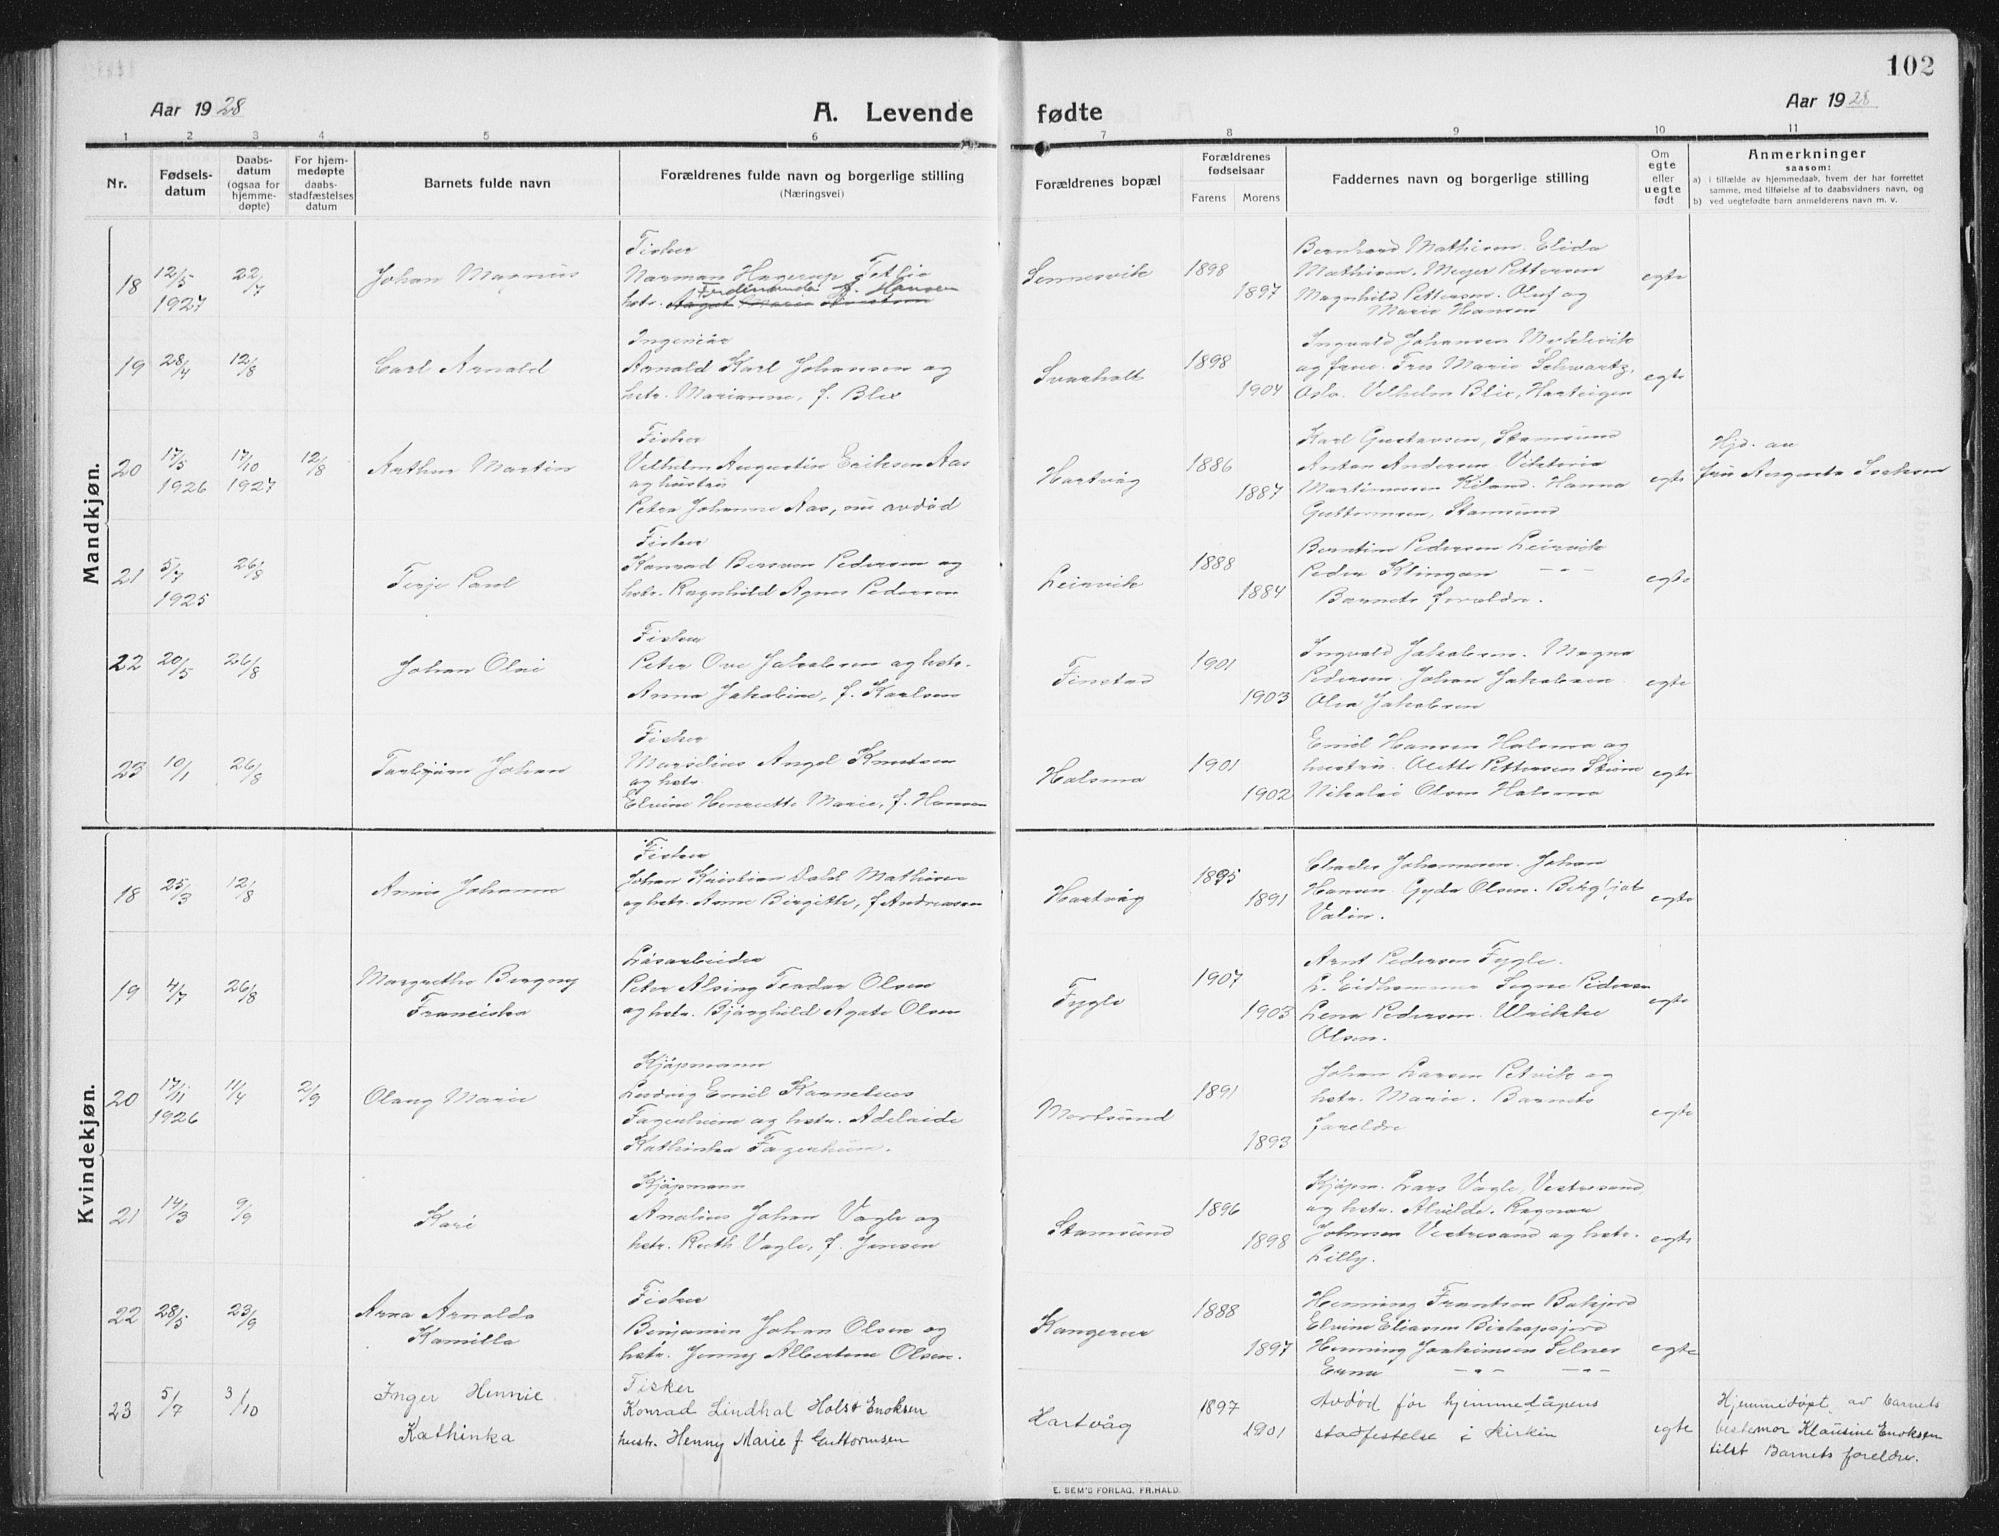 102
Aar 1928
A. Levende fødte
Aar 1928
1 2 3 4 5 6 7 8 9 10 11
Nr.
Fødselsdatum
Daabsdatum (ogsaa for hjemmedøpte)
For hjemmedøpte daabsstadfæstelses datum
Barnets fulde navn
Forældrenes fulde navn og borgerlige stilling
(Næringsvei)
Forældrenes bopæl
Forældrenes fødselsaar
Farens Morens
Faddernes navn og borgerlige stilling
Om egte eller uegte født
Anmerkninger
saasom:
a) i tilfælde av hjemmedaab, hvem der har forrettet
samme, med tilføielse af to daabsvidners navn, og
b) ved uegtefødte barn anmelderens navn m. v.
Mandkjøn.
18 12/5 1927 22/7
Johan Magnus
Fisker
hstr.
Sennesvik
1898
1897
Bernhard Mathisen. Elida
Mathisen. Meyer Pettersen
Magnhild Pettersen. Oluf og
Marie Hansen
egte
19 28/4 12/8
Carl Arnold
Ingeniør
Arnold Karl Johansen og
hstr. Marianne, f. Blix
Svarholt
1898
1904
Ingvald Johansen
og frue. Marie Schwartz,
Oslo. Vilhelm Blix,
egte
20 17/5 1926 17/10 1927 12/8
Arthur Martin
Fisker
Vilhelm Augustin Eriksen Aas
og hustru
Petra Johanne Aas, nu avdød
Hartvåg
1886
1887
Karl Gustavsen, Stamsund
Anton Andersen. Viktoria
Martinussen. Hanna
Guttormsen, Stamsund
egte
Hjd. av
fru Augusta
21 5/7 1925 26/8
Terje Paul
Fisker
Konrad Bersvon Pedersen og
hstr. Ragnhild Agnes Pedersen
Leirvik
1888
1884
Berntine Pedersen Leirvik
Peder Klingan — " —
Barnets forældre.
egte
22 20/5 26/8
Johan Olai
Fisker
Peter Ove Jakobsen og hstr.
Anna Jakobine, f. Karlsen
Finstad
1901
1903
Ingvald Jakobsen. Magna
Pedersen. Johan Jakobsen.
Olea Jakobsen
egte
23 10/1 26/8
Torbjørn Johan
Fisker
Marselius Angel Knutsen
og hstr.
Elvine Henriette Marie, f. Hansen
Holsmo
1901
1902
Emil Hansen Holsmo og
hustru. Olette Pettersen
Nikolai Olsen Holsmo
egte
Kvindekjøn.
18 25/3 12/8
Annie Johanna
Fisker
Johan Kristian Dahl Mathisen
og hstr. Anne Birgitte, f. Andreassen
Hartvåg
1895
1891
Charles Johannesen. Johan
Hansen. Gyda Olsen. Bergljot
Valin.
egte
19 4/7 26/8
Margrethe Bergny
Franciska
Løsarbeider
Peter Alsing Teodor Olsen
og hstr. Bjørghild Agate Olsen
Fygle
1907
1903
Arnt Pedersen Fygle.
L. Eidhammer Signe Pedersen
Lena Pedersen. Ulrikke
Olsen.
egte
20 17/11 1926 11/4 2/9
Olaug Marie
Kjøpmann
Ludvig Emil Kornelius
Fagerheim og hstr. Adelaide
Kathinka Fagerheim.
Mortsund
1891
1893
Johan Larsen Petvik og
hstr. Marie. Barnets
foreldre
egte
21 14/3 9/9
Kari
Kjøpmann
Anelius Johan Vagle og
hstr. Ruth Vagle, f. Jensen
Stamsund
1896
1898
Kjøpm. Lars Vagle, Vestresand,
og hstr. Alvilde. Ragnar
Johnsen Vestresand og hstr.
Lilly.
egte
22 28/5 23/9
Arna Arnolda
Kamilla
Fisker
Benjamin Johan Olsen og
hstr. Jenny Albertine Olsen.
Kangerur
1888
1897
Henning Frantsen Bakjord
Elvine Eliassen
Henning Joakimsen Selnes
Erna — " — — " —
egte
23 5/7 3/10
Inger Hennie
Kathinka
Fisker
Konrad Lindhal Holst Enoksen
hustr. Henny Marie f. Guttormsen
Hartvåg
1897
1901
Avdød før hjemmedåpens
stadfestelse i kirken
egte
Hjemmedøpt av barnets
bestemor Klausine Enoksen
tilst. Barnets foreldre.
E. SEM'S FORLAG, FR.HALD.